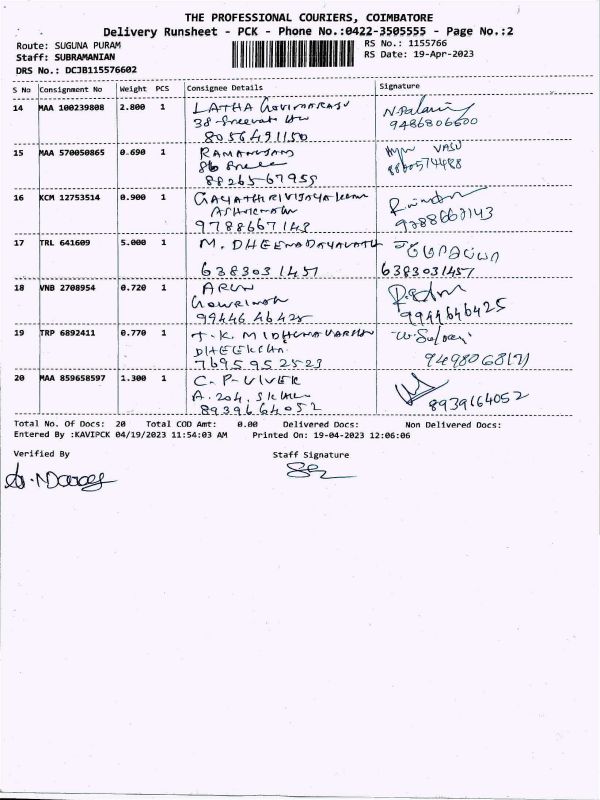 THE PROFESSIONAL COURIERS, COIMBATORE
Delivery Runsheet - PCK - Phone No.:0422-3505555 - Page No.:2
Route: SUGUNA PURAM
RS No.: 1155766
Staff: SUBRAMANIAN
RS Date: 19-Apr-2023
DRS No.: DCJB115576602
S No Consignment No Weight PCS Consignee Details Signature
14 MAA 100239808 2.800 1 LATHA
38
8056491150
9486806600
15 MAA 570050865 0.690 1 RAMANUJAM VASU
86
8826567955
16 KCM 12753514 0.900 1
9788667143
9788667143
17 TRL 641609 5.000 1 M. DHEENADAYALAN
6383031451
6383031451
18 VNB 2708954 0.720 1 ARUN
9944646425
9944646425
19 TRP 6892411 0.770 1 T.K. MIDHUNAVARSHN
7695952523
20 MAA 859658597 1.300 1 C. P. VIVEK
A. 204,
8939664052
8939164052
Total No. Of Docs: 20 Total COD Amt: 0.00 Delivered Docs: Non Delivered Docs:
Entered By :KAVIPCK 04/19/2023 11:54:03 AM Printed On: 19-04-2023 12:06:06
Verified By Staff Signature